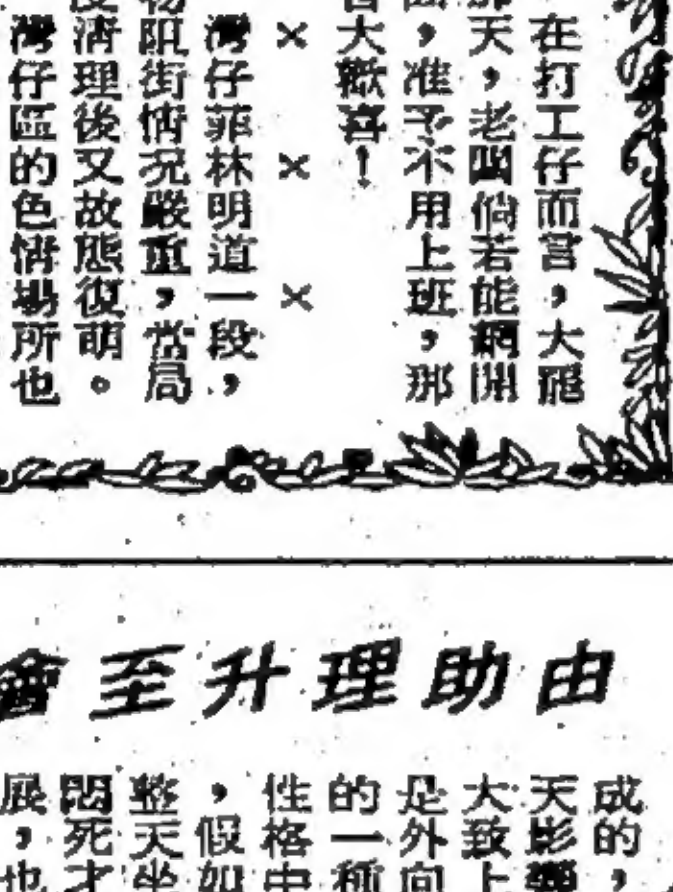 在打工仔而言,大
天,老闆倘若能網開
,准予不用上班,那
大歡喜!
× × ×
灣仔菲林明道一段,
物阻街情況嚴重,當局
清理後又故態復萌。
灣仔區的色情場所也
由助理升至會
成的,
天影
大致上
是外向
的一種
性格中
,假如
整天坐
悶死才
展,也